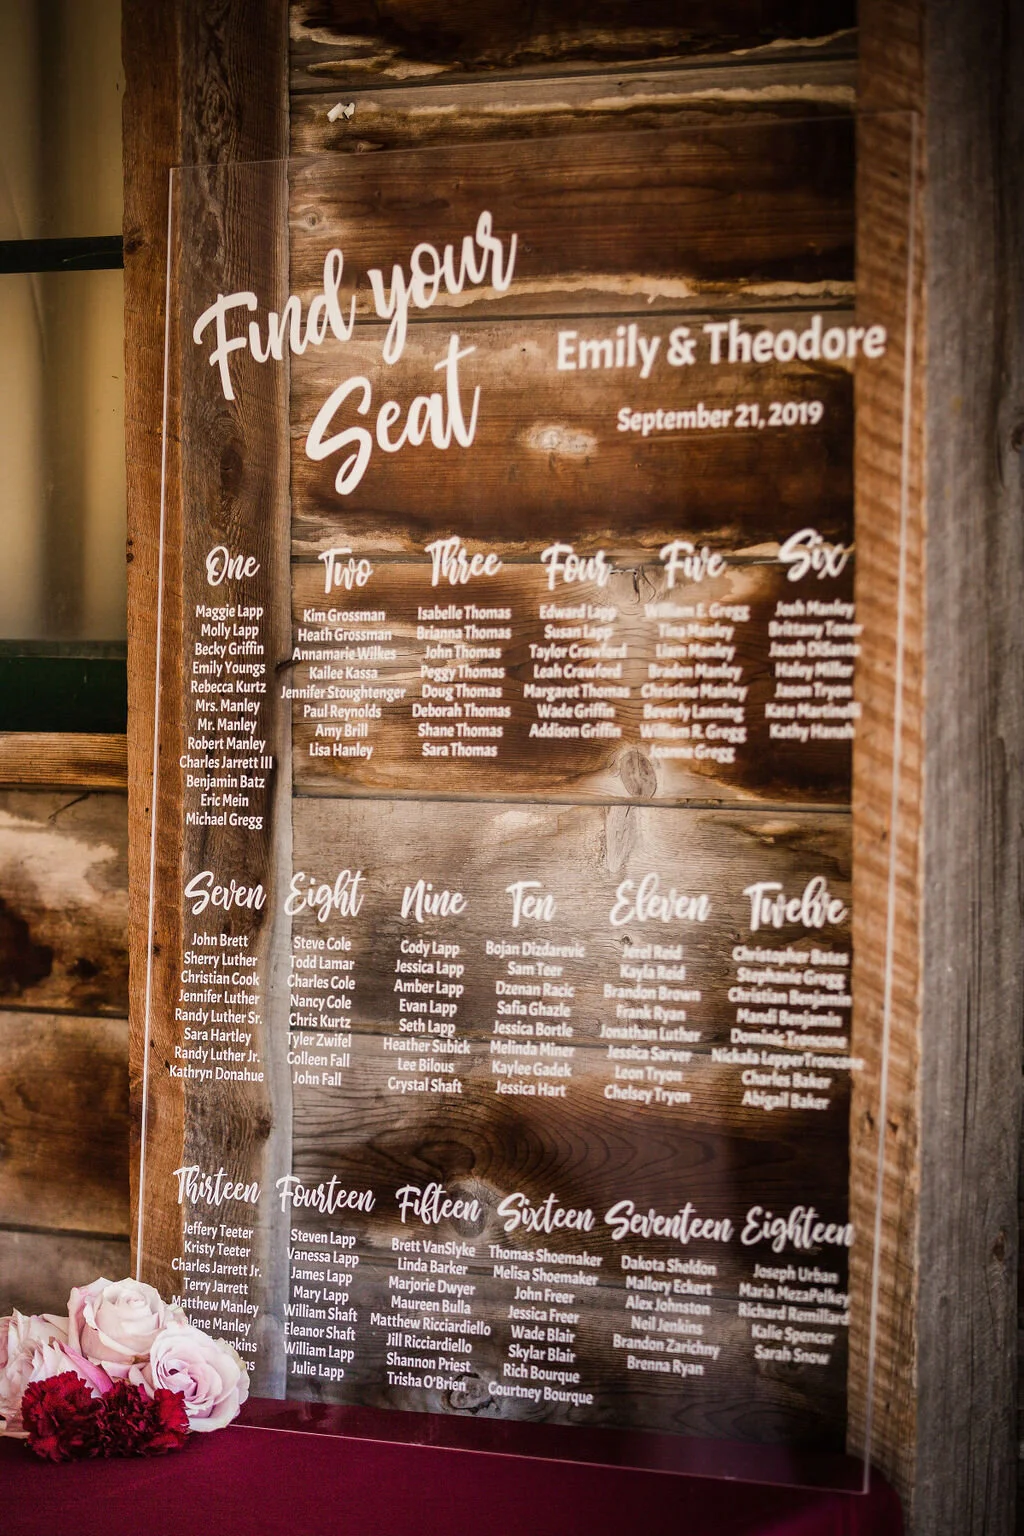 Find your
Seat
Emily & Theodore
September 21, 2019
One
Maggie Lapp
Molly Lapp
Becky Griffin
Emily Youngs
Rebecca Kurtz
Mrs. Manley
Mr. Manley
Robert Manley
Charles Jarrett III
Benjamin Batz
Eric Mein
Michael Gregg
Two
Kim Grossman
Heath Grossman
Annamarie Wilkes
Kailee Kassa
Jennifer Stoughtenger
Paul Reynolds
Amy Brill
Lisa Hanley
Three
Isabelle Thomas
Brianna Thomas
John Thomas
Peggy Thomas
Doug Thomas
Deborah Thomas
Shane Thomas
Sara Thomas
Four
Edward Lapp
Susan Lapp
Taylor Crawford
Leah Crawford
Margaret Thomas
Wade Griffin
Addison Griffin
Five
William E. Gregg
Tina Manley
Liam Manley
Braden Manley
Christine Manley
Beverly Lanning
William R. Gregg
Joanne Gregg
Six
Josh Manley
Brittany
Jacob DiSanto
Haley Miller
Jason Tryon
Kate
Kathy Hanah
Seven
John Brett
Sherry Luther
Christian Cook
Jennifer Luther
Randy Luther Sr.
Sara Hartley
Randy Luther Jr.
Kathryn Donahue
Eight
Steve Cole
Todd Lamar
Charles Cole
Nancy Cole
Chris Kurtz
Tyler Zwifel
Colleen Fall
John Fall
Nine
Cody Lapp
Jessica Lapp
Amber Lapp
Evan Lapp
Seth Lapp
Heather Subick
Lee Bilous
Crystal Shaft
Ten
Bojan Dizdarevic
Sam Teer
Dzenan Racic
Safia Ghazle
Jessica Bortle
Melinda Miner
Kaylee Gadek
Jessica Hart
Eleven
Jerel Reid
Kayla Reid
Brandon Brown
Frank Ryan
Jonathan Luther
Jessica Sarver
Leon Tryon
Chelsey Tryon
Twelve
Christopher Bates
Stephanie Gregg
Christian Benjamin
Mandi Benjamin
Dominic Troncone
Nickala LepperTroncone
Charles Baker
Abigail Baker
Thirteen
Jeffery Teeter
Kristy Teeter
Charles Jarrett Jr.
Terry Jarrett
Matthew Manley
Manley
Fourteen
Steven Lapp
Vanessa Lapp
James Lapp
Mary Lapp
William Shaft
Eleanor Shaft
William Lapp
Julie Lapp
Fifteen
Brett VanSlyke
Linda Barker
Marjorie Dwyer
Maureen Bulla
Matthew Ricciardiello
Jill Ricciardiello
Shannon Priest
Trisha O'Brien
Sixteen
Thomas Shoemaker
Melisa Shoemaker
John Freer
Jessica Freer
Wade Blair
Skylar Blair
Rich Bourque
Courtney Bourque
Seventeen
Dakota Sheldon
Mallory Eckert
Alex Johnston
Neil Jenkins
Brandon Zarichny
Brenna Ryan
Eighteen
Joseph Urban
Maria MezaPelkey
Richard Remillard
Kalie Spencer
Sarah Snow